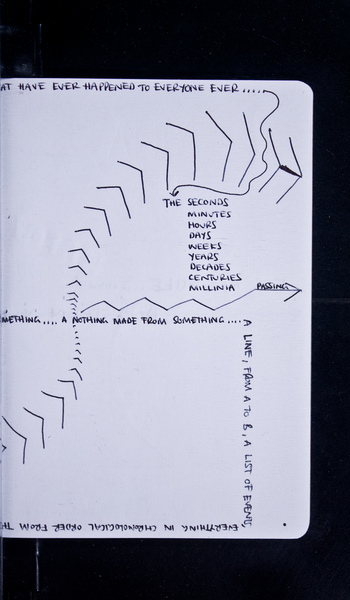 AT HAVE EVER HAPPENED TO EVERYONE EVER.....
THE SECONDS
MINUTES
HOURS
DAYS
WEEKS
YEARS
DECADES
CENTURIES
MILLINIA
PASSING
METHING.... A NOTHING MADE FROM SOMETHING....
A LINE, FROM A TO B, A LIST OF EVENTS,
EVERYTHING IN CHRONOLOGICAL ORDER FROM TH